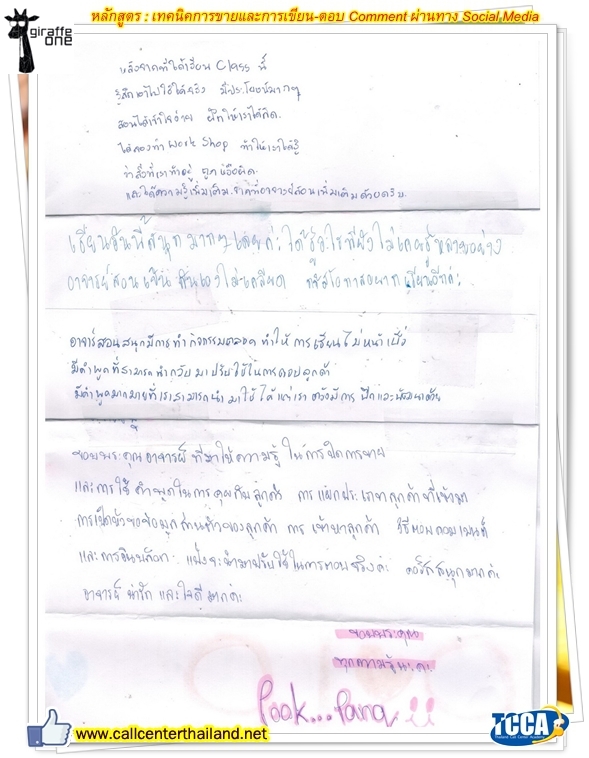 หลักสูตร : เทคนิคการขายและการเขียน-ตอบ Comment ผ่านทาง Social Media
giraffe
one
หลังจากที่ได้เรียน Class นี้
รู้สึกเอาไปใช้ได้จริง มีประโยชน์มากๆ
สอนได้เข้าใจง่าย ฝึกให้เราได้คิด
ได้ลองทำ Work Shop ทำให้เราได้รู้
ว่าสิ่งที่เราทำอยู่ ถูกหรือผิด
และได้ความรู้เพิ่มเติมจากที่อาจารย์สอนเพิ่มเติมด้วยครับ
เรียนวันนี้สนุกมากๆเลยค่ะ ได้รู้อะไรที่ยังไม่เคยรู้หลายอย่าง
อาจารย์สอน เป็นกันเองไม่เครียด โอกาสอยากเรียนอีกค่ะ
อาจารย์สอนสนุกมีการทำกิจกรรมตลอด ทำให้การเรียนไม่หน้าเบื่อ
มีคำพูดที่สามารถนำกลับมาปรับใช้ในการตอบลูกค้า
มีคำพูดมากมายที่เราสามารถนำมาใช้ได้ แต่เราต้องมีการฝึกและพัฒนาด้วย
ขอบพระคุณอาจารย์ที่มาให้ความรู้ในการปิดการขาย
และการใช้คำพูดในการคุยกับลูกค้า การแยกประเภทลูกค้าที่เข้ามา
การเปิดขอข้อมูลส่วนตัวของลูกค้า การเข้าหาลูกค้า วิธีตอบคอมเมนต์
และการอินบล็อก จะนำมาปรับใช้ในการตอบจริงค่ะ คอร์สสนุกมากค่ะ
อาจารย์น่ารักและใจดีมากค่ะ
ขอบพระคุณ
ทุกความรู้นะคะ
Pook...Pana
www.callcenterthailand.net
TCCA
Thailand Call Center Academy